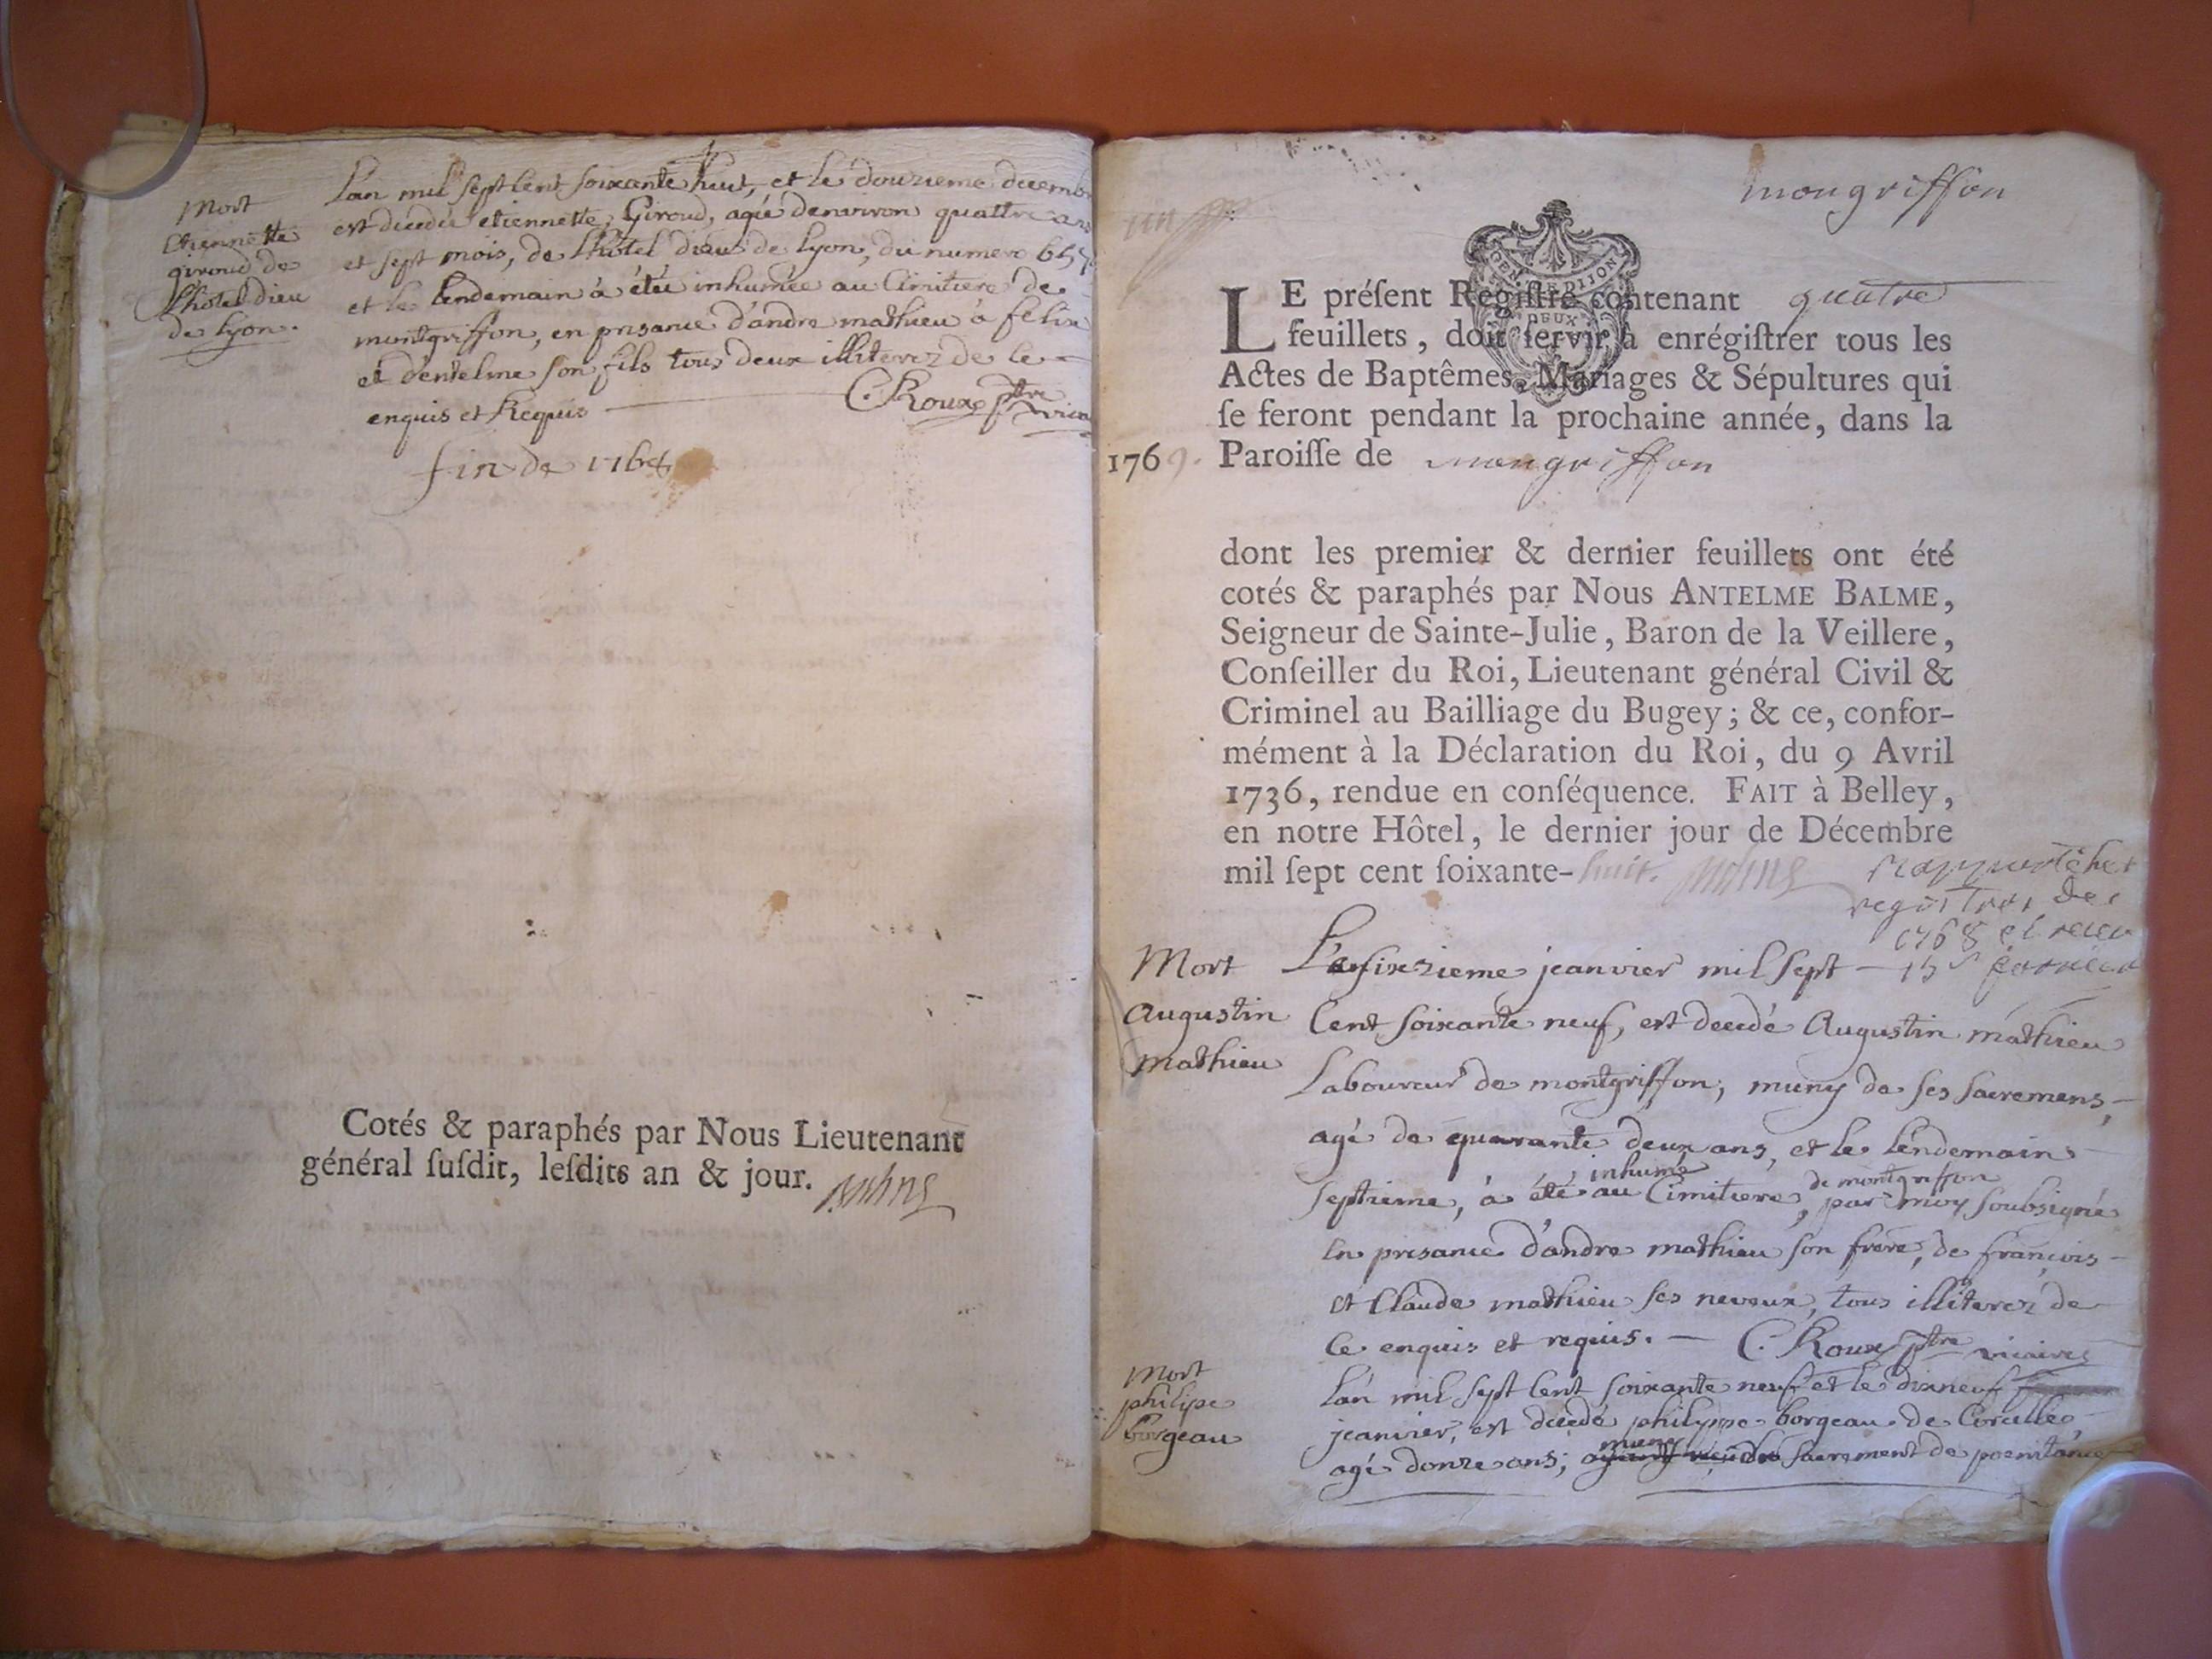 Mort
Etiennette
giroud de
Lhotel dieu
de lyon.
Lan mil sept Cent soixante huit, et le douzieme decemb
est decedée etiennette Giroud, agée denviron quattre ans
et sept mois, de Lhotel dieu de lyon, du numero
et le Lendemain à étée inhumée au Cimitiere de
montgriffon, en presance d'andre mathieu à felix
et d'entelme son fils tous deux illiterez de ce
enquis et Requis C. Roux ptre vica
fin de 1768
Cotés & paraphés par Nous Lieutenant
général ſuſdit, leſdits an & jour.
mongriffon
un
GEN DIJON
DEUX
LE préſent Regiſtre contenant quatre
feuillets, doit ſervir à enrégiſtrer tous les
Actes de Baptêmes, Mariages & Sépultures qui
ſe feront pendant la prochaine année, dans la
1769. Paroiſſe de mongriffon
dont les premier & dernier feuillets ont été
cotés & paraphés par Nous ANTELME BALME,
Seigneur de Sainte-Julie, Baron de la Veillere,
Conſeiller du Roi, Lieutenant général Civil &
Criminel au Bailliage du Bugey; & ce, confor-
mément à la Déclaration du Roi, du 9 Avril
1736, rendue en conſéquence. FAIT à Belley,
en notre Hôtel, le dernier jour de Décembre
mil ſept cent ſoixante-huit.
registres de
1768 et
Mort
Augustin
Mathieu
Le sixzieme jeanvier mil sept
Cent soixante neuf, est decedé Augustin mathieu
Laboureur de montgriffon, muny de ses sacremens,
agé de quarante deux ans, et le lendemain
septieme, à été inhumé au Cimitiere de montgriffon, par moy soubsigné
en presance d'andre mathieu son frere, de françois
et Claude mathieu ses neveux, tous illiterez de
Ce enquis et requis. — C. Roux ptre vicaire
Mort
philipe
borgeau
Lan mil sept Cent soixante neuf et le dixneuf
jeanvier, est decedé philippe borgeau de Corcelles
agé douze ans; muny sacrement de poenitance